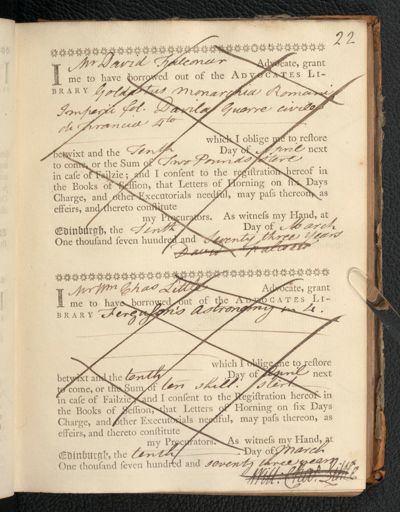 22
I Mr David Falconar Advocate, grant
me to have borrowed out of the ADVOCATES LI-
BRARY Goldastus monarchia Romani
Imperii fol. Davila Guerre civile
de francia 4to
which I oblige me to reſtore
betwixt and the Tenth Day of April next
to come, or the Sum of Two Pounds ster
in caſe of Failzie; and I conſent to the regiſtration hereof in
the Books of Seſſion, that Letters of Horning on ſix Days
Charge, and other Executorials needful, may paſs thereon, as
effeirs, and thereto conſtitute
my Procurators. As witneſs my Hand, at
Edinburgh, the Tenth Day of March
One thouſand ſeven hundred and Seventy three years
David
I Mr Wm Chas Little Advocate, grant
me to have borrowed out of the ADVOCATES LI-
BRARY Ferguson's Astronomy in 4.
which I oblige me to reſtore
betwixt and the tenth Day of April next
to come, or the Sum of ten shill. ster
in caſe of Failzie; and I conſent to the Regiſtration hereof in
the Books of Seſſion, that Letters of Horning on ſix Days
Charge, and other Executorials needful, may paſs thereon, as
effeirs, and thereto conſtitute
my Procurators. As witneſs my Hand, at
Edinburgh, the tenth Day of March
One thouſand ſeven hundred and seventy three years
Will. Chas. Little